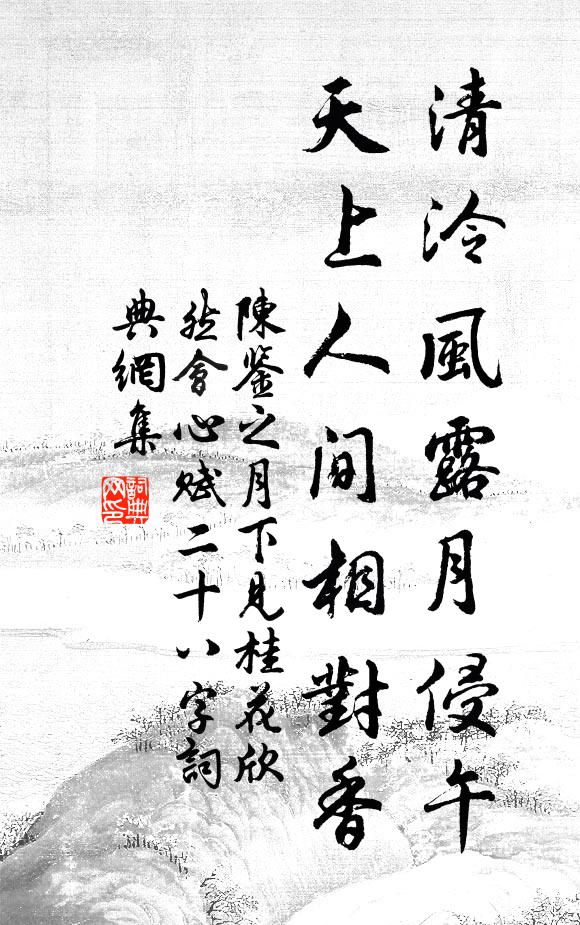 清泠風露月侵午
天上人間相對香
陳鉴之月下見桂花欣
然會心賦二十八字詞
典網集
詞典
网印